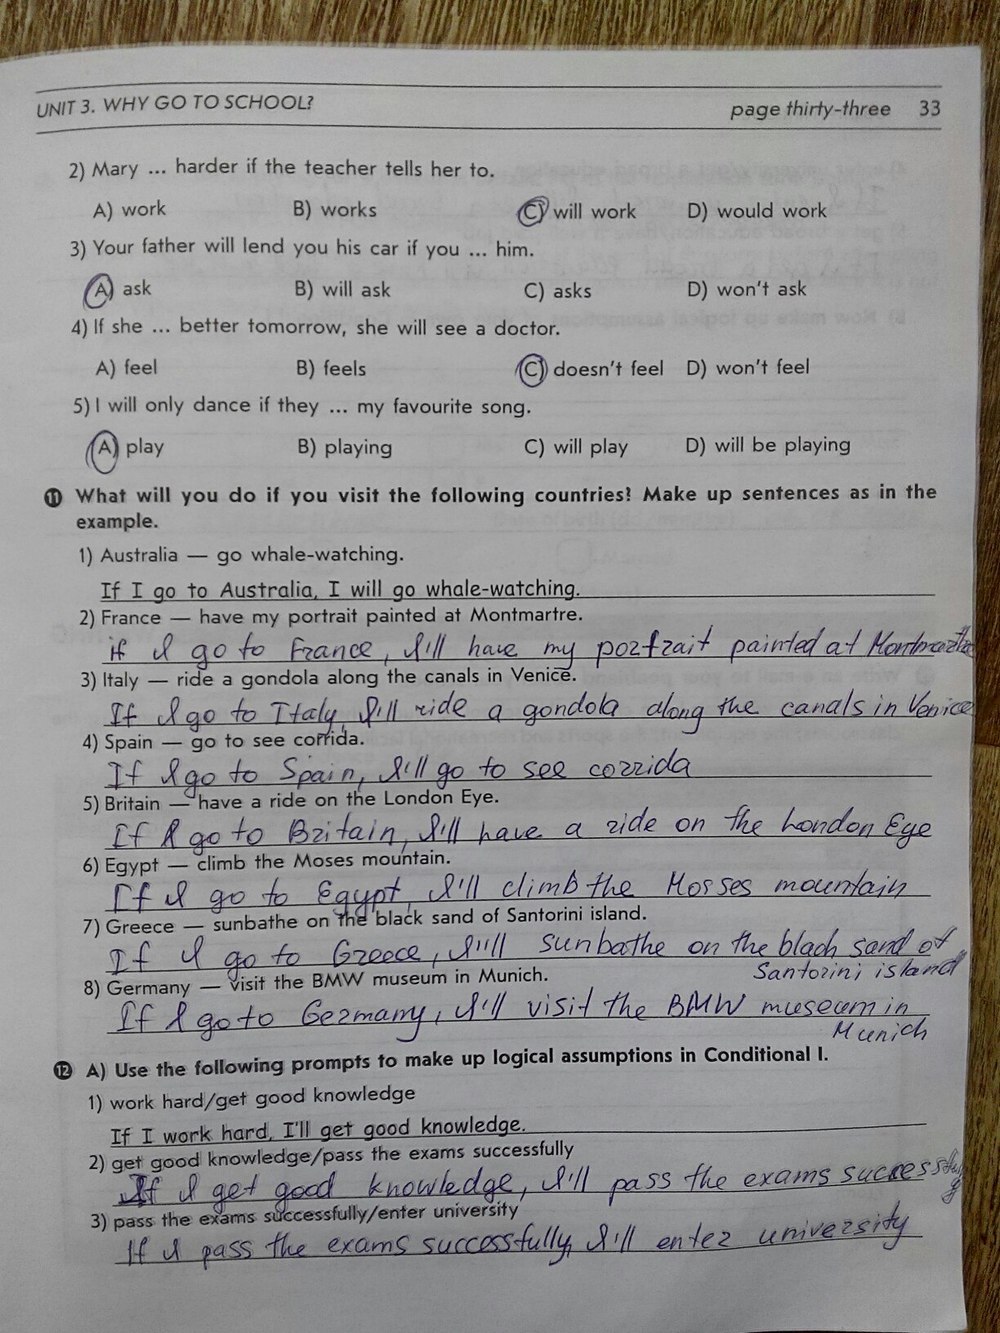 UNIT 3. WHY GO TO SCHOOL? page thirty-three 33
2) Mary ... harder if the teacher tells her to.
A) work B) works C) will work D) would work
3) Your father will lend you his car if you ... him.
A) ask B) will ask C) asks D) won't ask
4) If she ... better tomorrow, she will see a doctor.
A) feel B) feels C) doesn't feel D) won't feel
5) I will only dance if they ... my favourite song.
A) play B) playing C) will play D) will be playing
11 What will you do if you visit the following countries? Make up sentences as in the
example.
1) Australia — go whale-watching.
If I go to Australia, I will go whale-watching.
2) France — have my portrait painted at Montmartre.
if I go to France, I'll have my portrait painted at Montmartre
3) Italy — ride a gondola along the canals in Venice.
If I go to Italy, I'll ride a gondola along the canals in Venice
4) Spain — go to see corrida.
If I go to Spain, I'll go to see corrida
5) Britain — have a ride on the London Eye.
If I go to Britain, I'll have a ride on the London Eye
6) Egypt — climb the Moses mountain.
If I go to Egypt, I'll climb the Mosses mountain
7) Greece — sunbathe on the black sand of Santorini island.
If I go to Greece, I'll sunbathe on the black sand of
Santorini island
8) Germany — visit the BMW museum in Munich.
If I go to Germany, I'll visit the BMW museum in
Munich
12 A) Use the following prompts to make up logical assumptions in Conditional I.
1) work hard/get good knowledge
If I work hard, I'll get good knowledge.
2) get good knowledge/pass the exams successfully
If I get good knowledge, I'll pass the exams successfully
3) pass the exams successfully/enter university
If I pass the exams successfully, I'll enter university